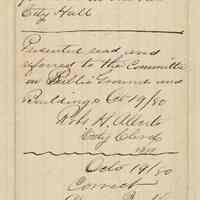 City Hall
Presented read and
referred to the Committee
on Public Ground and
Buildings Oct 19/80
Robt H.
City Clerk
Octo 19/80
Correct